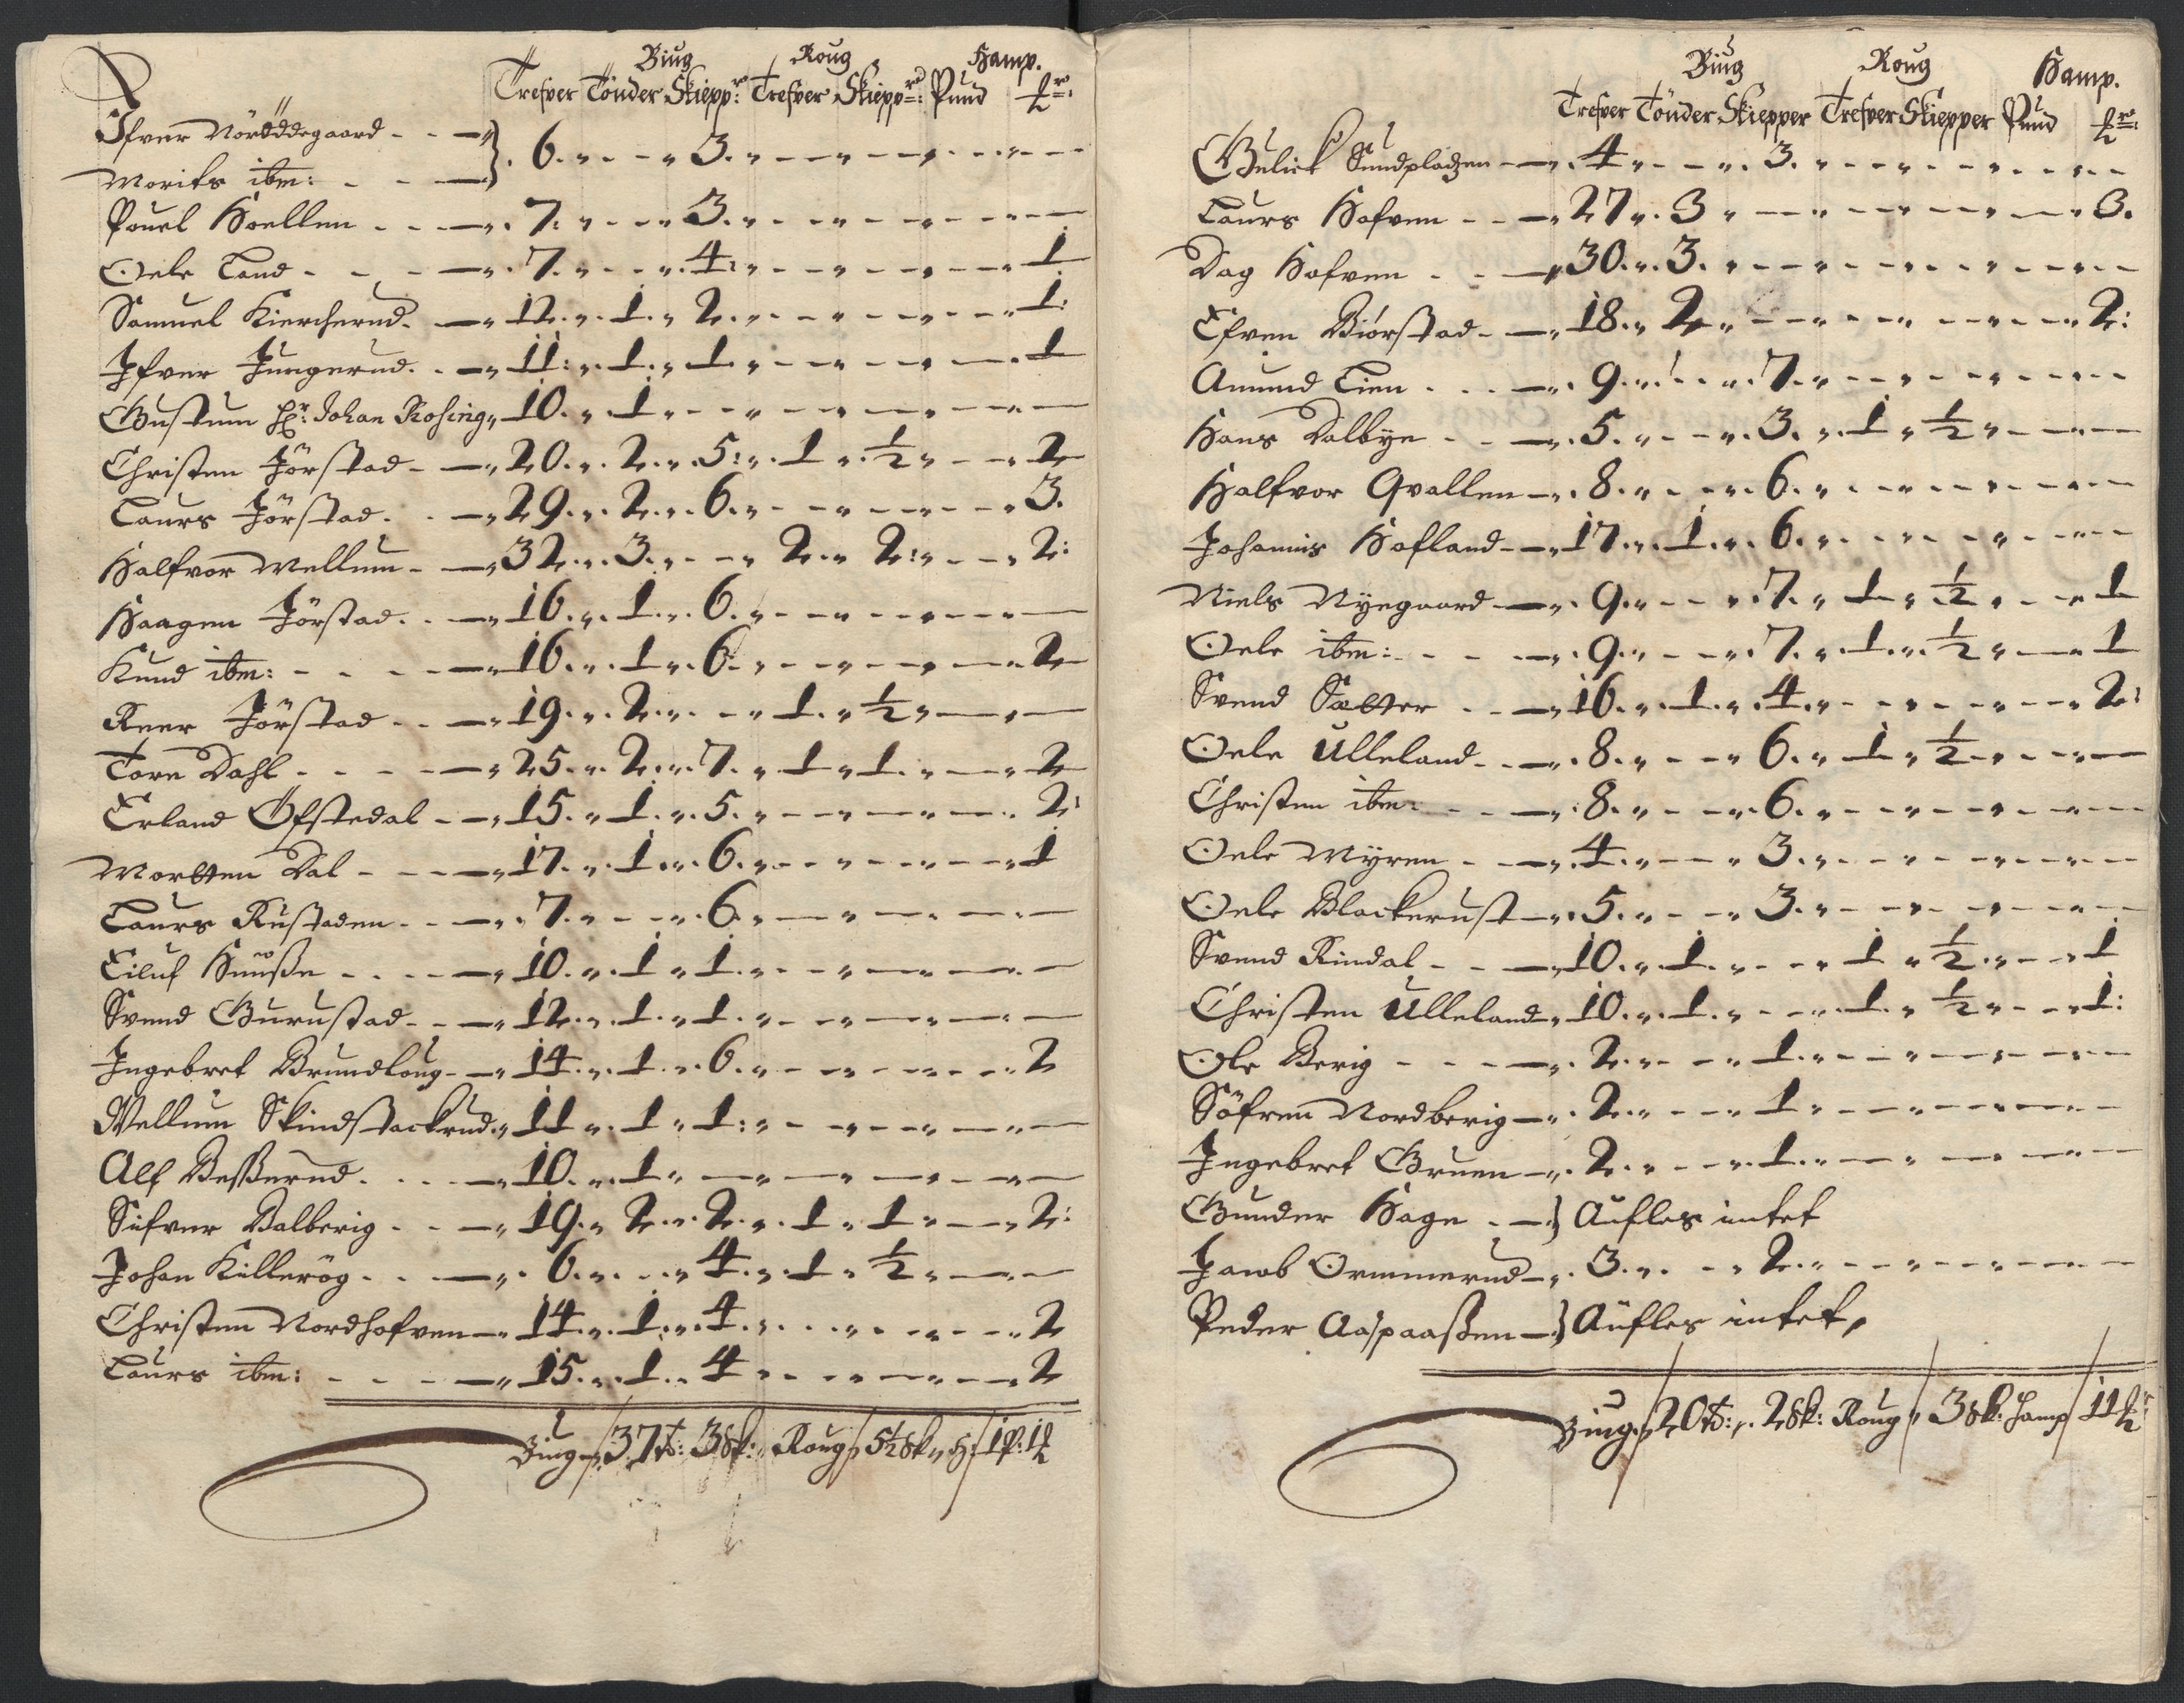 Biug Roug Hamp.
Trefver Tönder Skiepp:r Trefver Skiepp:r Pund
Ifver Nörddegaard - - — } 6. „ - - „ 3. „ - - „ - „ - - „ -
Morits ibm: - - — }
Pouel Hoellen - - — „ 7. „ - - „ 3. „ - - „ - „ - - „ -
Oele Land - - - — „ 7. „ - - „ 4. „ - - „ - „ - - „ 1
Samuel Kiercherud. — „ 12. „ 1. „ 2. „ - - „ - „ - - „ 1:
Ifver Jungerud. - — „ 11: „ 1. „ 1. „ - - „ - „ - - 1
Gustum Hr: Johan Rosing „ 10. „ 1. „ - - „ - „ - „ -
Christen Jörstad - — „ 20. „ 2. „ 5: „ 1 „ ½ „ - - „ 2
Laurs Jörstad. - — „ 29. „ 2. „ 6. „ - - „ - „ - - „ 3.
Halfvor Mellum - — „ 32. „ 3. „ - - „ 2. „ 2: „ - - „ 2:
Haagen Jörstad. - — „ 16. „ 1. „ 6. „ - - „ - „ - - „ -
Knud ibm: - - - — „ 16. „ 1. „ 6. „ - - „ - „ - - 2
Reer Jörstad - - — „ 19. „ 2. „ - - „ 1. „ ½ „ - „ -
Tore Dahl - - - — „ 25. „ 2. „ 7. „ 1 „ 1. „ - - „ 2
Erland Öfstedal - — „ 15. „ 1. „ 5. „ - - „ - „ - - 2:
Morten Dal - - — „ 17. „ 1. „ 6. „ - - „ - „ - - „ 1
Laurs Rustaden - - — „ 7. „ - - „ 6. „ - - „ - „ - -
Eiluf Huuße - - - — „ 10. „ 1 „ 1. „ - - „ - „ - -
Svend Gurustad - - — „ 12. „ 1. „ 1. „ - - „ - „ - -
Ingebret Brundloug - — „ 14. „ 1. „ 6. „ - - „ - „ - - „ 2
Mellum Skindstackrud „ 11 „ 1 „ 1: „ - - „ - „ - -
Alf Beßerud. - - - — „ 10. „ 1 „ - - „ - „ - „ -
Sifver Dalberig - - — „ 19. „ 2. „ 2. „ 1. „ 1 „ - - „ 2:
Johan Killerög - - — „ 6. „ - - „ 4. „ 1 „ ½ „ - - -
Christen Nordhofven — „ 14. „ 1. „ 4. „ - - „ - „ - - „ 2
Laurs ibm: - - - — „ 15. „ 1. „ 4 „ - - „ - „ - - „ 2
Biug „ 37 td: 3 sk: „ Roug „ 5½ sk „ H: 1 p: 1
Biug Roug Hamp.
Trefver Tönder Skiepper Trefver Skiepper Pund
Gulick Sundpladzen — „ 4 „ - - „ 3. „ - - „ - „ - -
Laurs Hofven - - — „ 27 „ 3 „ - - „ - „ - „ - „ 3.
Dag Hofven - - — „ 30. „ 3. „ - - „ - „ - - „ -
Efven Biörstad - — „ 18. „ 2. „ - - „ - „ - - „ 2:
Amund Lien - - - — „ 9. „ - - „ 7. „ - - „ - „ - -
Hans Dalbye - - — „ 5. „ - - „ 3. „ 1 „ ½ „ - - -
Halfvor Qvallen — „ 8. „ - - „ 6. „ - - „ - „ - -
Johannis Hofland — „ 17. „ 1. „ 6. „ - - „ - „ - -
Niels Nyegaard — „ 9. „ - - „ 7. „ 1 „ ½ „ - - „ 1
Oele ibm: - - - — „ 9. „ - - „ 7. „ 1. „ ½ „ - - 1
Svend Sætter - - — „ 16. „ 1. „ 4. „ - - „ - „ - - „ 2:
Oele Ulleland - - — „ 8. „ - - „ 6. „ 1 „ ½ „ - - -
Christen ibm: - - — „ 8. „ - - „ 6. „ - - „ - „ - -
Oele Myren - - — „ 4. „ - - „ 3. „ - - „ - „ - -
Oele Blackerust — „ 5. „ - - „ 3. „ - - „ - „ - -
Svend Rindal - - — „ 10. „ 1. „ - - „ 1 „ ½ „ - - „ 1
Christen Ulleland „ 10. „ 1. „ - - „ 1. „ ½ „ - - „ 1:
Ole Berig - - - — „ 2. „ - - „ 1. „ - - „ - „ - -
Söfren Nordberig — „ 2. „ - - „ 1 „ - - „ - „ - -
Ingebret Gruen — „ 2. „ - - „ 1. „ - - „ - „ - -
Gunder Hage - —} Aufles intet
Jacob Ormmerud — „ 3. „ - - „ 2. „ - - „ - „ - -
Peder Aaspaaßen —} Aufles intet,
Biug „ 20 td: „ 2 sk: Roug „ 3 sk: Hamp 11